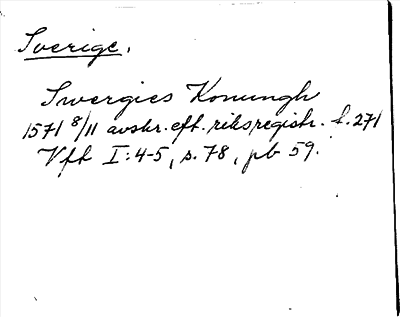 Sverige.
Swergies Konungh
1571 8/11 avskr. eft. riksregistr. f. 271
Vfk I:4-5, s. 78, pb 59.